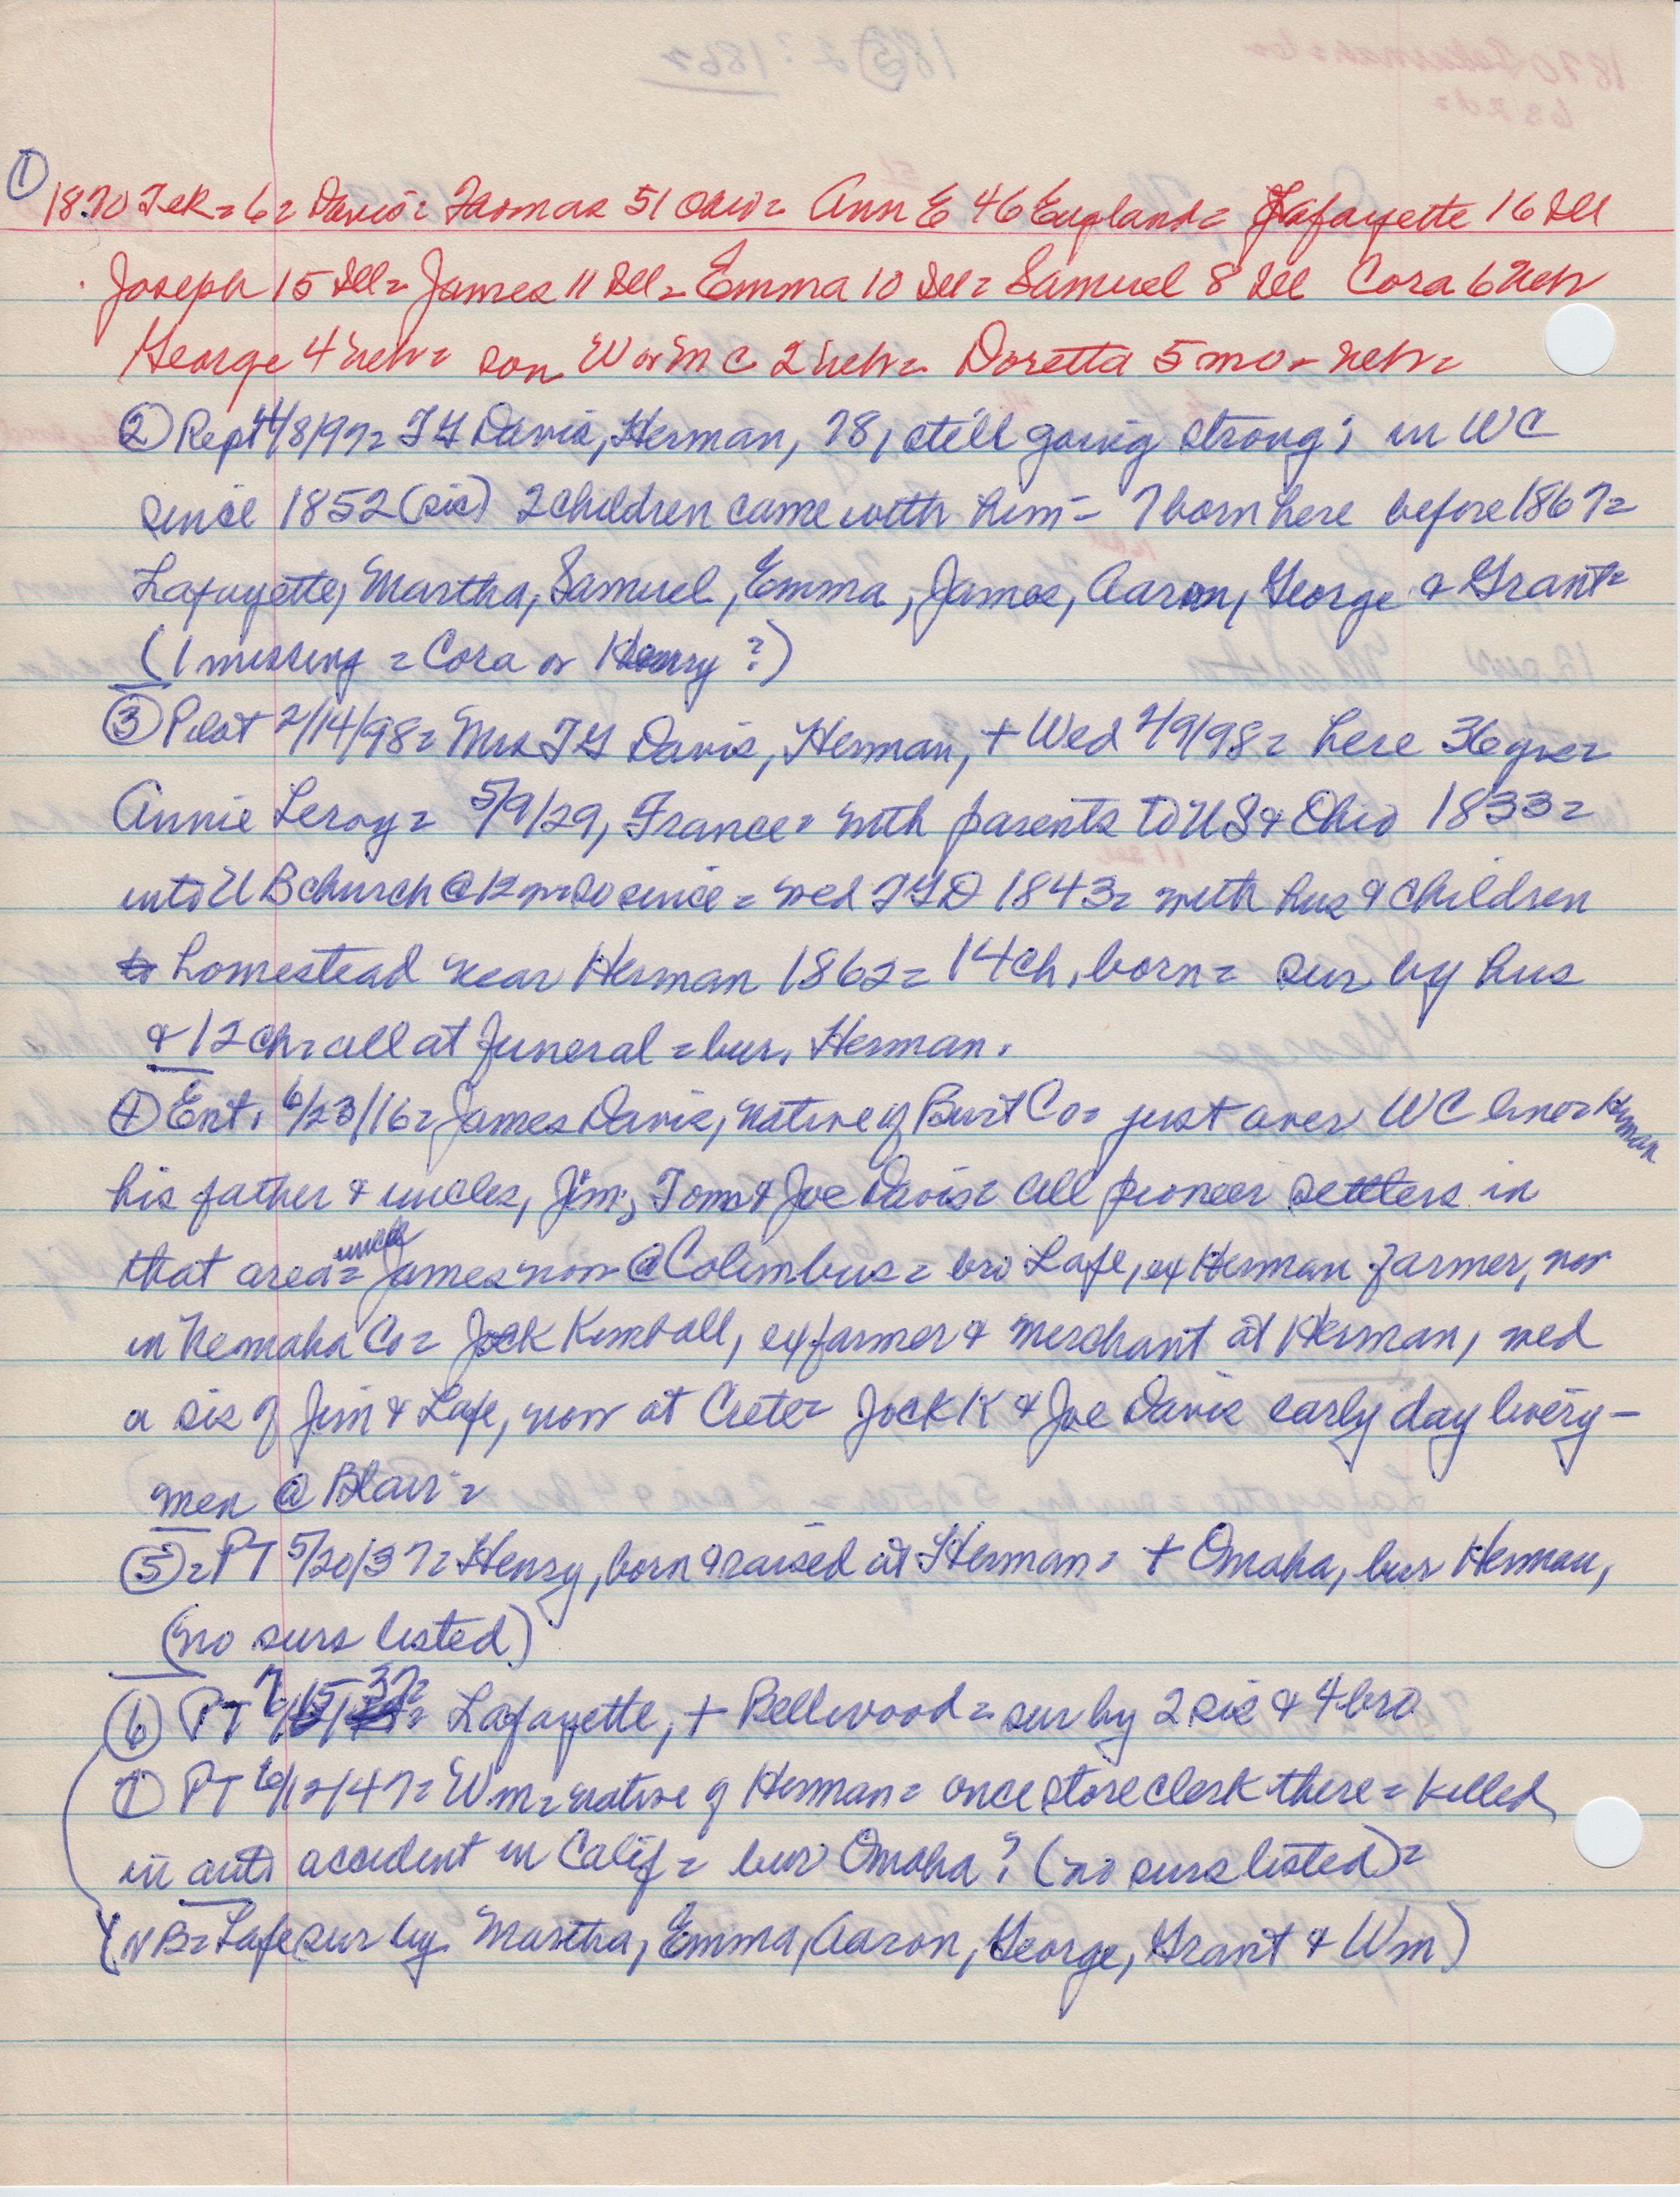 ①
1870 Tek = 6 = Davis = Thomas 51 Ohio = Ann E 46 England = Lafayette 16 Ill
Joseph 15 Ill = James 11 Ill = Emma 10 Ill = Samuel 8 Ill Cora 6 Neb
George 4 Neb = son W or Wm C 2 Neb = Doretta 5 mo - Neb =
② Rept 4/8/97 = T G Davis, Herman, 78, still going strong; in WC
since 1852 (sic) 2 children came with him - 7 born here before 1867 =
Lafayette, Martha, Samuel, Emma, James, Aaron, George & Grant =
(1 missing = Cora or Henry ?)
③ Pilot 2/14/98 = Mrs T G Davis, Herman, + Wed 2/9/98 = here 36 yrs =
Annie Leroy = 5/9/29, France = with parents to US & Ohio 1833 =
into U B church @ 12 since = wed T G D 1843 = with hus & children
to homestead near Herman 1862 = 14 ch, born = sur by hus
& 12 ch = all at funeral = bur. Herman.
④ Ent. 6/23/16 = James Davis, native of Burt Co = just over WC line = Herman
his father & uncles, Jim, Tom & Joe Davis = all pioneer settlers in
that area = uncle James now @ Columbus = bro Lafe, ex Herman farmer, now
in Nemaha Co = Jock Kimball, ex farmer & merchant at Herman, wed
a sis of Jim & Lafe, now at Crete = Jock K & Joe Davis early day livery-
men @ Blair =
⑤ = PT 5/20/37 = Henry, born & raised at Herman = + Omaha, bur Herman,
(no surs listed)
⑥ PT 7/15/37 = Lafayette, + Bellwood = sur by 2 sis & 4 bro
⑦ PT 6/12/47 = Wm = native of Herman = once store clerk there = killed
in auto accident in Calif = bur Omaha? (no surs listed) =
(NB = Lafe sur by Martha, Emma, Aaron, George, Grant & Wm)